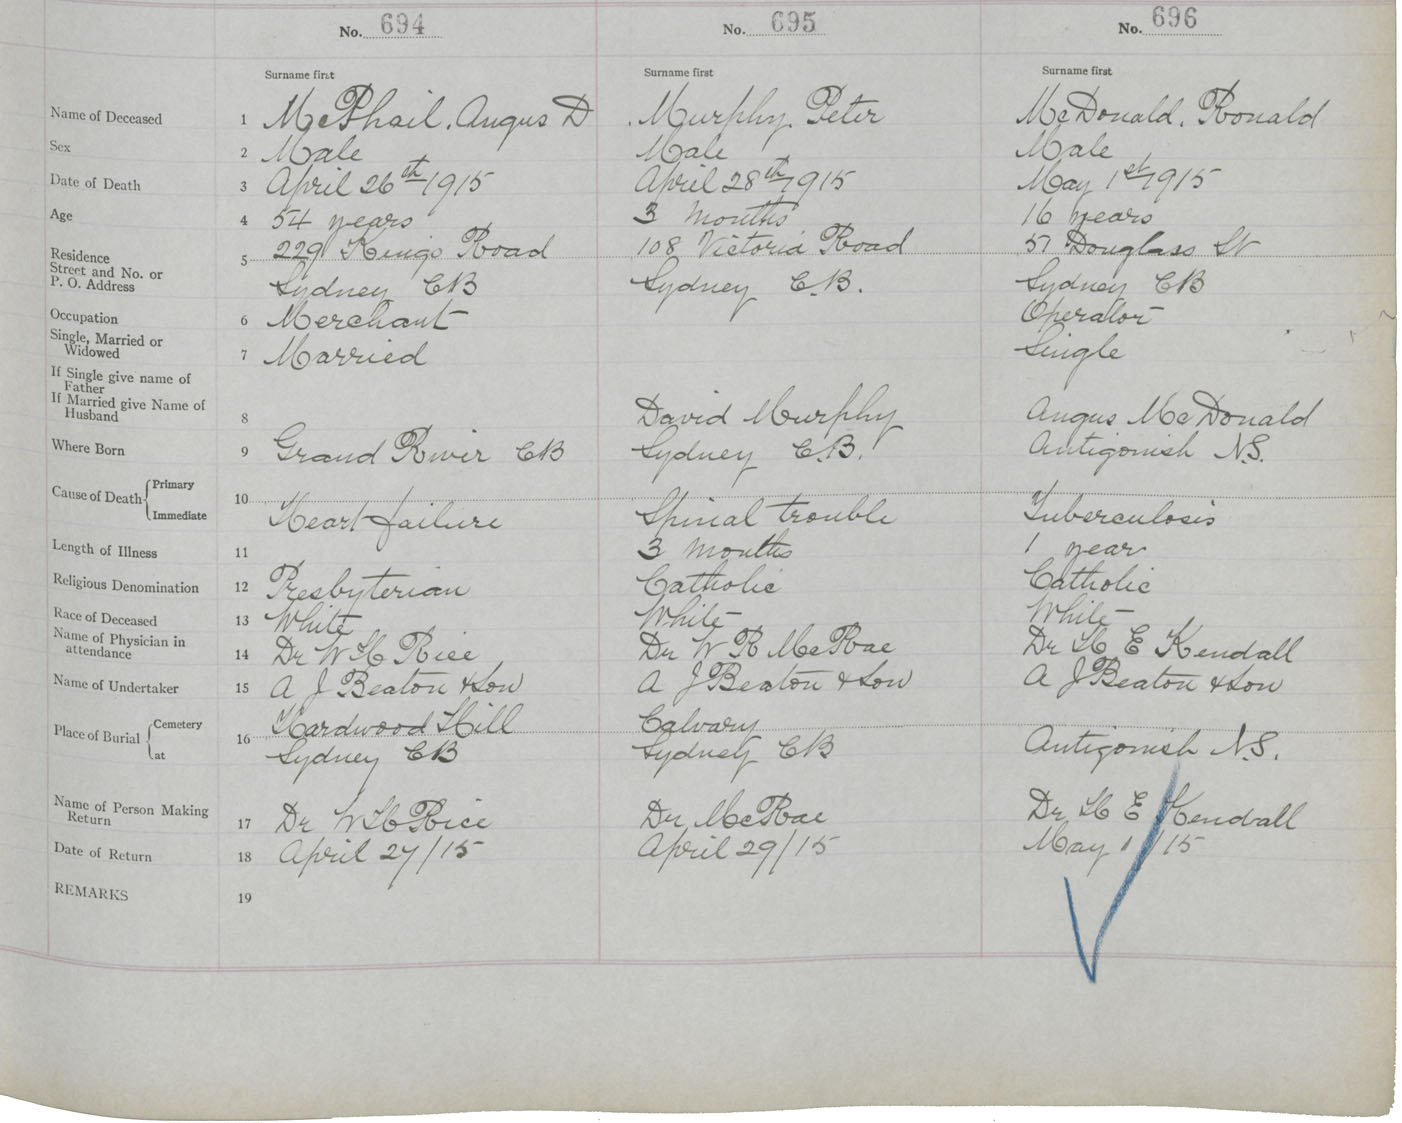 No. 694 No. 695 No. 696
Surname first Surname first Surname first
Name of Deceased 1 McPhail, Angus D Murphy, Peter McDonald, Ronald
Sex 2 Male Male Male
Date of Death 3 April 26th 1915 April 28th 1915 May 1st 1915
Age 4 54 years 3 months 16 years
Residence 5 229 Kings Road 108 Victoria Road 57 Douglass St
Street and No. or
P. O. Address Sydney CB Sydney C.B. Sydney CB
Occupation 6 Merchant Operator
Single, Married or
Widowed 7 Married Single
If Single give name of
Father
If Married give Name of
Husband 8 David Murphy Angus McDonald
Where Born 9 Grand River CB Sydney C.B. Antigonish N.S.
Cause of Death Primary 10
Immediate Heart failure Spinal trouble Tuberculosis
Length of Illness 11 3 months 1 year
Religious Denomination 12 Presbyterian Catholic Catholic
Race of Deceased 13 White White White
Name of Physician in
attendance 14 Dr W H Rice Dr W R McRae Dr H E Kendall
Name of Undertaker 15 A J Beaton & Son A J Beaton & Son A J Beaton & Son
Place of Burial Cemetery 16 Hardwood Hill Calvary
at Sydney CB Sydney CB Antigonish N.S.
Name of Person Making
Return 17 Dr W H Rice Dr McRae Dr H E Kendall
Date of Return 18 April 27/15 April 29/15 May 1/15
REMARKS 19